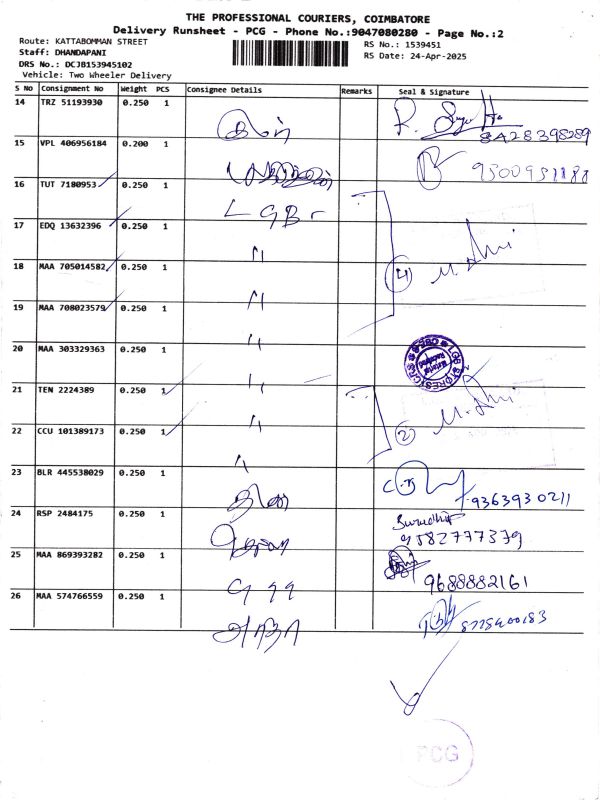 THE PROFESSIONAL COURIERS, COIMBATORE
Delivery Runsheet - PCG - Phone No.:9047080280 - Page No.:2
Route: KATTABOMMAN STREET
RS No.: 1539451
Staff: DHANDAPANI
RS Date: 24-Apr-2025
DRS No.: DCJB153945102
Vehicle: Two Wheeler Delivery
S No Consignment No Weight PCS Consignee Details Remarks Seal & Signature
14 TRZ 51193930 0.250 1
8428398289
15 VPL 406956184 0.200 1
9500951188
16 TUT 7180953 0.250 1
LGB
17 EDQ 13632396 0.250 1 〃
18 MAA 705014582 0.250 1 〃 (4)
19 MAA 708023579 0.250 1 〃
20 MAA 303329363 0.250 1 〃
21 TEN 2224389 0.250 1 〃
22 CCU 101389173 0.250 1 〃 (2)
23 BLR 445538029 0.250 1
9363930211
24 RSP 2484175 0.250 1
9582777379
25 MAA 869393282 0.250 1
9688882161
26 MAA 574766559 0.250 1
PCG